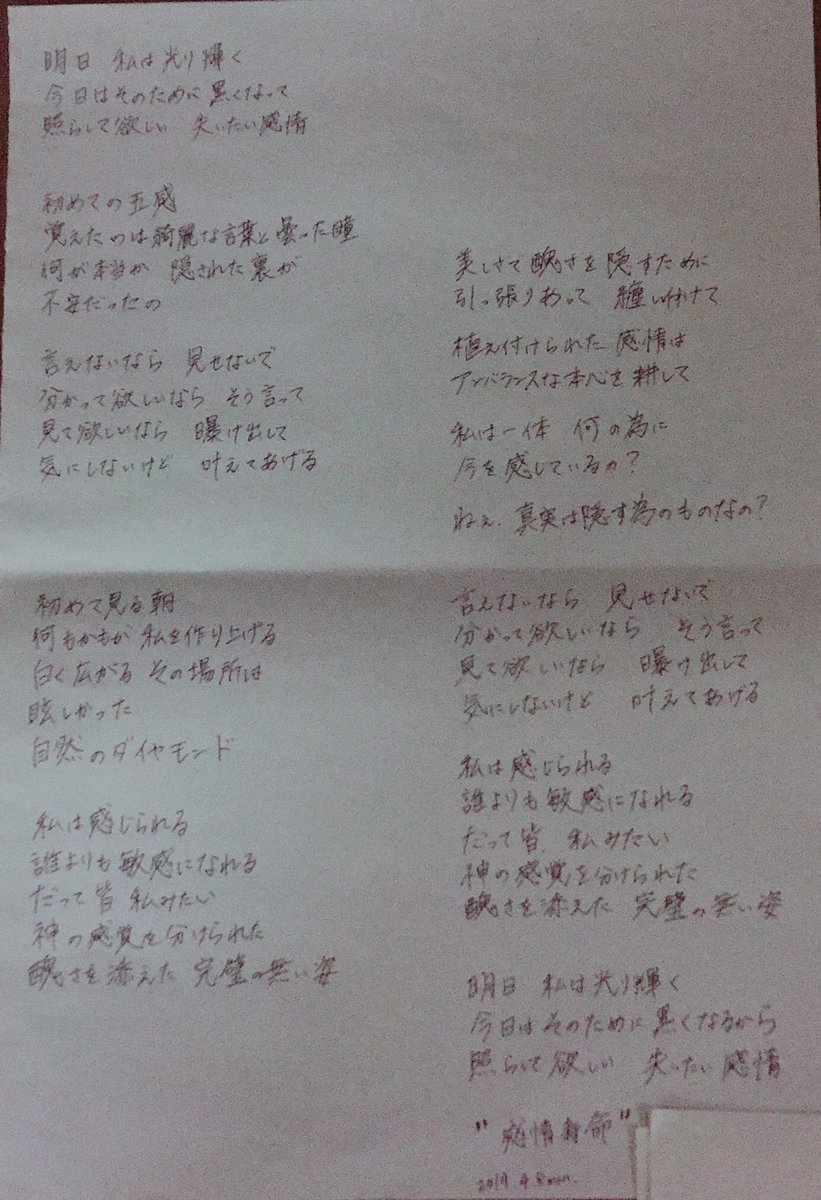 明日　私は光り輝く
今日はそのために黒くなって
照らして欲しい　失いたい感情
初めての五感
覚えたのは綺麗な言葉と曇った瞳
何が本当か　隠された裏が
不安だったの
言えないなら　見せないで
分かって欲しいなら　そう言って
見て欲しいなら　曝け出して
気にしないけど　叶えてあげる
初めて見る朝
何もかもが私を作り上げる
白く広がる その場所は
眩しかった
自然のダイヤモンド
私は感じられる
誰よりも敏感になれる
だって皆 私みたい
神の感覚を分けられた
醜さを添えた 完璧の無い姿
美しさで醜さを隠すために
引っ張りあって　纏い付けて
植え付けられた感情は
アンバランスな本心を耕して
私は一体　何の為に
今を感じているか？
ねぇ、真実は隠す為のものなの？
言えないなら　見せないで
分かって欲しいなら　そう言って
見て欲しいなら　曝け出して
気にしないけど　叶えてあげる
私は感じられる
誰よりも敏感になれる
だって皆　私みたい
神の感覚を分けられた
醜さを添えた 完璧の無い姿
明日　私は光り輝く
今日はそのために黒くなるから
照らして欲しい　失いたい感情
"感情寿命"
2019.4.8 mon.